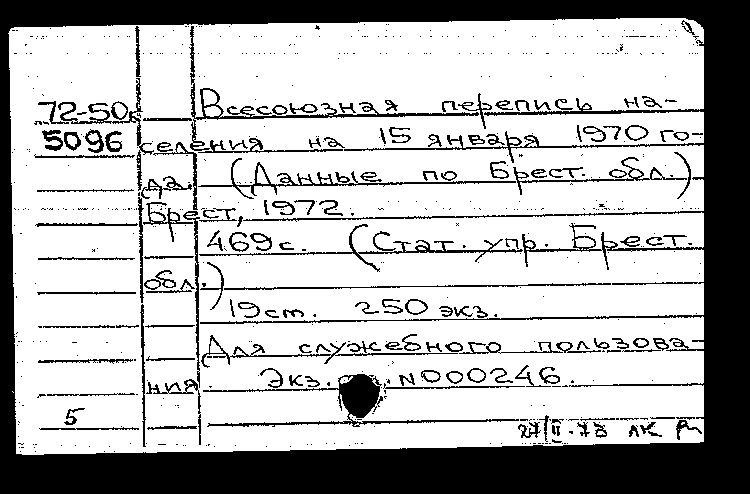 72-50к Всесоюзная перепись на-
5096 селения на 15 января 1970 го-
да. (Данные по Брест. обл.)
Брест, 1972.
469с. (Стат. упр. Брест.
обл.)
19см. 250 экз.
Для служебного пользова-
ния. Экз. N000246.
5
27/II-73 лк